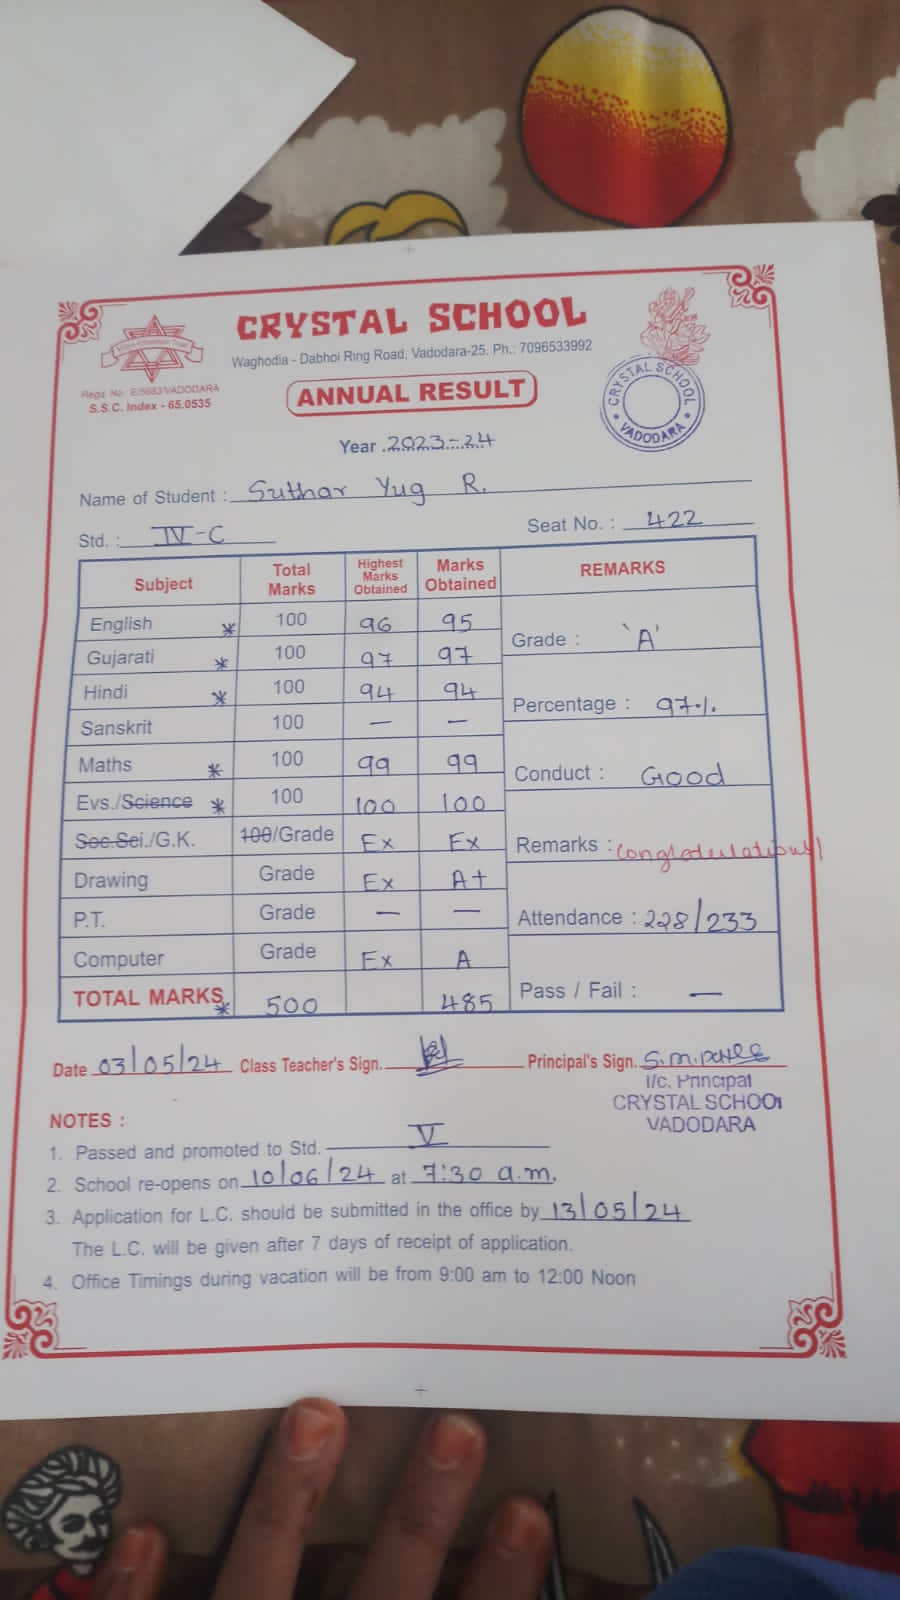 CRYSTAL SCHOOL
Waghodia - Dabhoi Ring Road, Vadodara-25. Ph.: 7096533992
Regd. No. E/5683/VADODARA
S.S.C. Index - 65.0535
ANNUAL RESULT
CRYSTAL SCHOOL
VADODARA
Year 2023-24
Name of Student : Suthar Yug R.
Std. : IV-C Seat No. : 422
Subject Total Marks Highest Marks Obtained Marks Obtained REMARKS
English * 100 96 95
Grade : 'A'
Gujarati * 100 97 97
Hindi * 100 94 94
Percentage : 97%
Sanskrit 100 — —
Maths * 100 99 99
Conduct : Good
Evs./Science * 100 100 100
Soc.Sci./G.K. 100/Grade Ex Ex
Remarks : Congratulations!
Drawing Grade Ex A+
P.T. Grade — —
Attendance : 228/233
Computer Grade Ex A
TOTAL MARKS * 500 485
Pass / Fail : —
Date 03/05/24 Class Teacher's Sign. Principal's Sign. S.M.Patel
I/c. Principal
CRYSTAL SCHOOL
VADODARA
NOTES :
1. Passed and promoted to Std. V
2. School re-opens on 10/06/24 at 7:30 a.m.
3. Application for L.C. should be submitted in the office by 13/05/24
The L.C. will be given after 7 days of receipt of application.
4. Office Timings during vacation will be from 9:00 am to 12:00 Noon